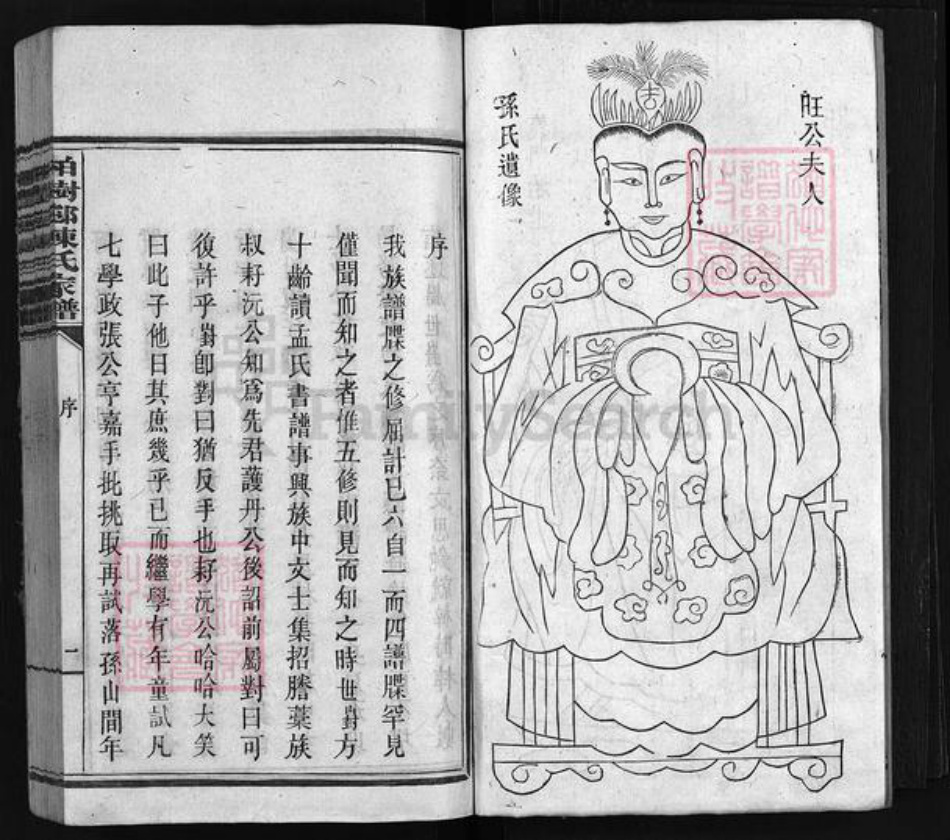 旺公夫人
孫氏遺像
序
我族譜牒之修屆計已六自一而四譜牒罕見
僅聞而知之者惟五修則見而知之時世爵方
十齡讀孟氏書譜事興族中文士集招謄藁族
叔籽沅公知爲先君護丹公後詔前屬對曰可
復許乎爵卽對曰猶反手也籽沅公哈哈大笑
曰此子他日其庶幾乎已而繼學有年童試凡
七學政張公亨嘉手批挑取再試落孫山間年
柏樹鄢陳氏家譜
序
一
FamilySearch